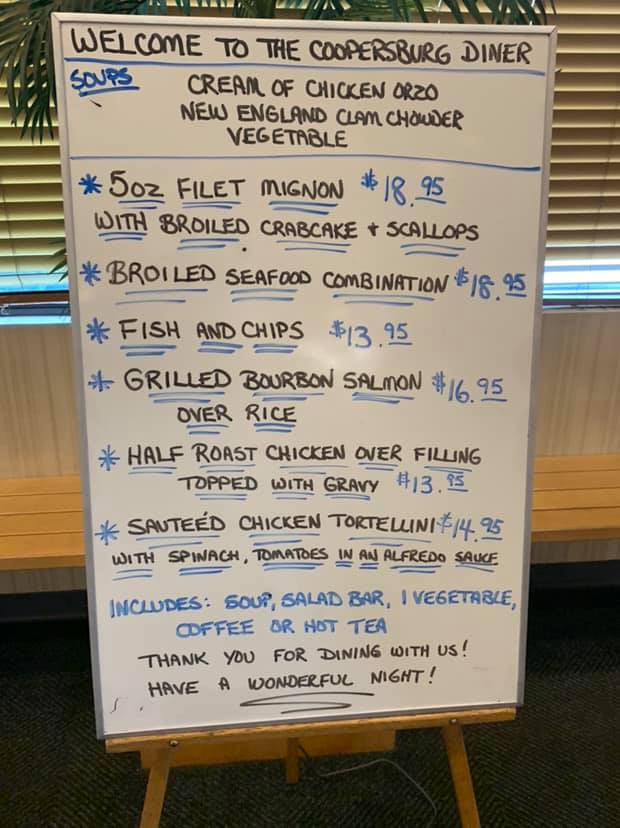 WELCOME TO THE COOPERSBURG DINER
SOUPS
CREAM OF CHICKEN ORZO
NEW ENGLAND CLAM CHOWDER
VEGETABLE
* 5oz FILET MIGNON $18.95
WITH BROILED CRABCAKE + SCALLOPS
* BROILED SEAFOOD COMBINATION $18.95
* FISH AND CHIPS $13.95
* GRILLED BOURBON SALMON $16.95
OVER RICE
* HALF ROAST CHICKEN OVER FILLING
TOPPED WITH GRAVY $13.95
* SAUTEÉD CHICKEN TORTELLINI $14.95
WITH SPINACH, TOMATOES IN AN ALFREDO SAUCE
INCLUDES: SOUP, SALAD BAR, 1 VEGETABLE,
COFFEE OR HOT TEA
THANK YOU FOR DINING WITH US!
HAVE A WONDERFUL NIGHT!